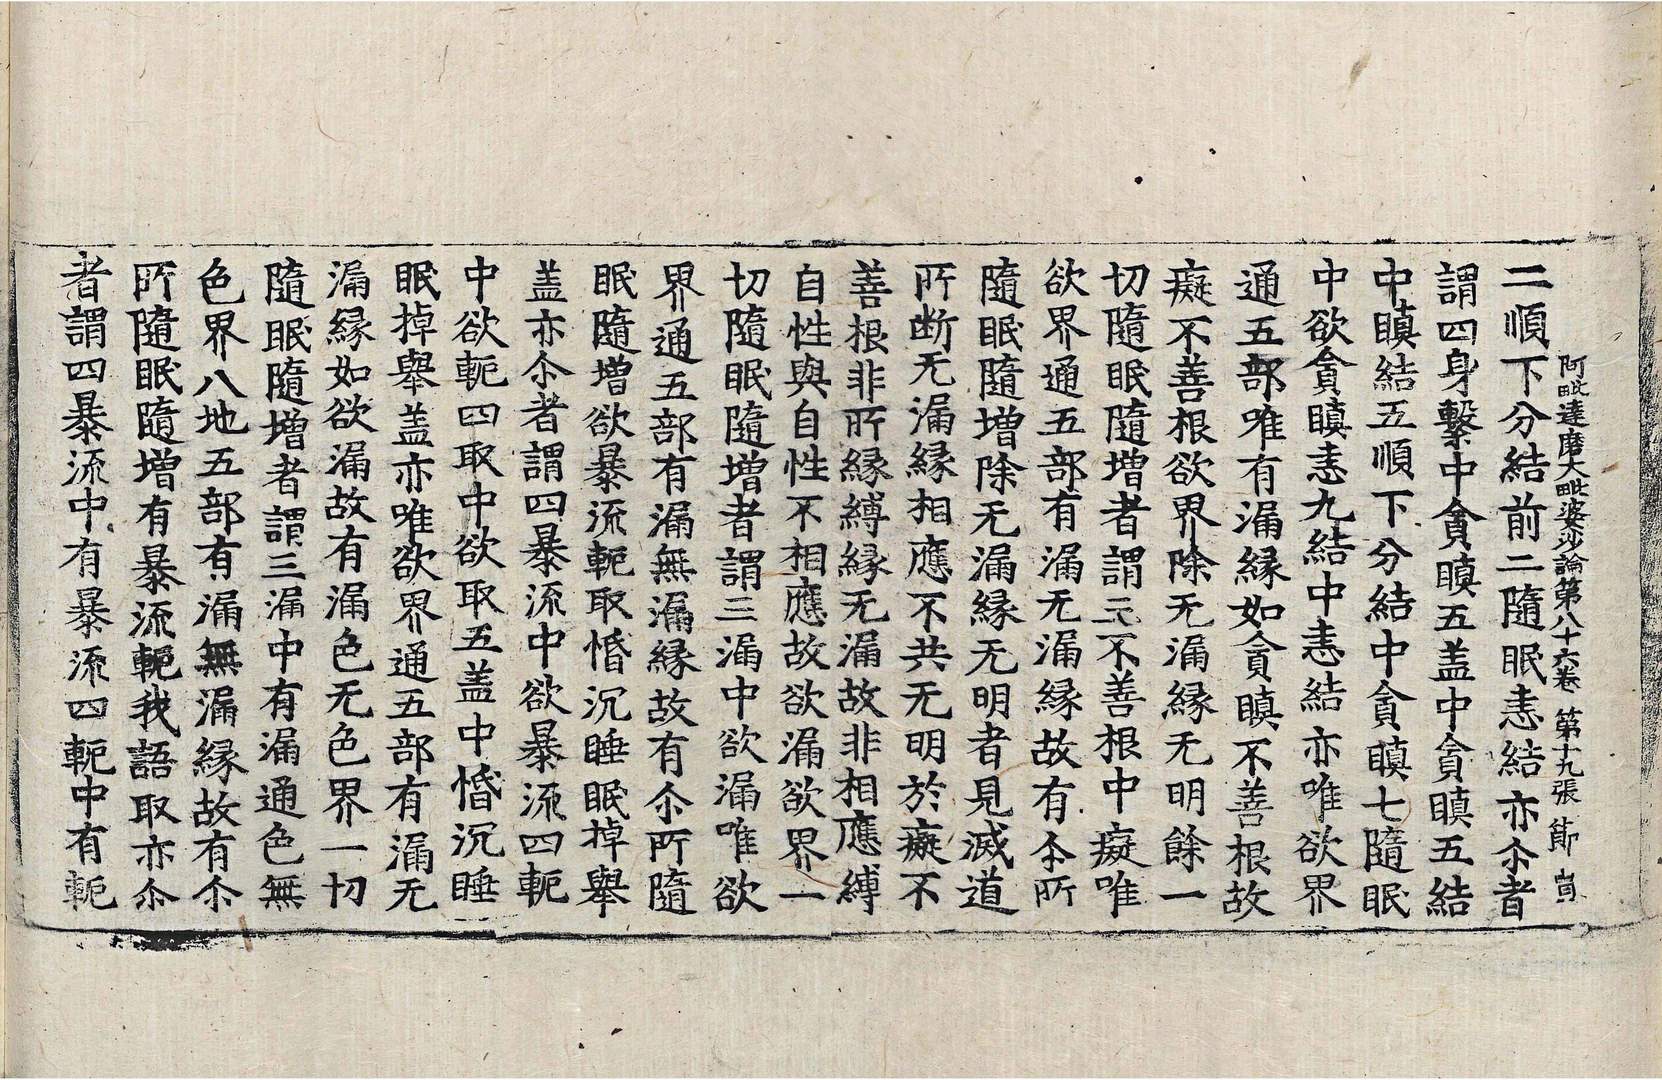 阿毗達磨大毗婆沙論第八十六卷 第十九張 節
二順下分結前二隨眠恚結亦尒者
謂四身繫中貪瞋五盖中貪瞋五結
中瞋結五順下分結中貪瞋七隨眠
中欲貪瞋恚九結中恚結亦唯欲界
通五部唯有漏緣如貪瞋不善根故
癡不善根欲界除无漏緣无明餘一
切隨眠隨增者謂三不善根中癡唯
欲界通五部有漏无漏緣故有尒所
隨眠隨增除无漏緣无明者見滅道
所断无漏緣相應不共无明於癡不
善根非所緣縛緣无漏故非相應縛
自性與自性不相應故欲漏欲界一
切隨眠隨增者謂三漏中欲漏唯欲
界通五部有漏無漏緣故有尒所隨
眠隨增欲暴流軛取惛沉睡眠掉舉
盖亦尒者謂四暴流中欲暴流四軛
中欲軛四取中欲取五盖中惛沉睡
眠掉舉盖亦唯欲界通五部有漏无
漏緣如欲漏故有漏色无色界一切
隨眠隨增者謂三漏中有漏通色無
色界八地五部有漏無漏緣故有尒
所隨眠隨增有暴流軛我語取亦尒
者謂四暴流中有暴流四軛中有軛